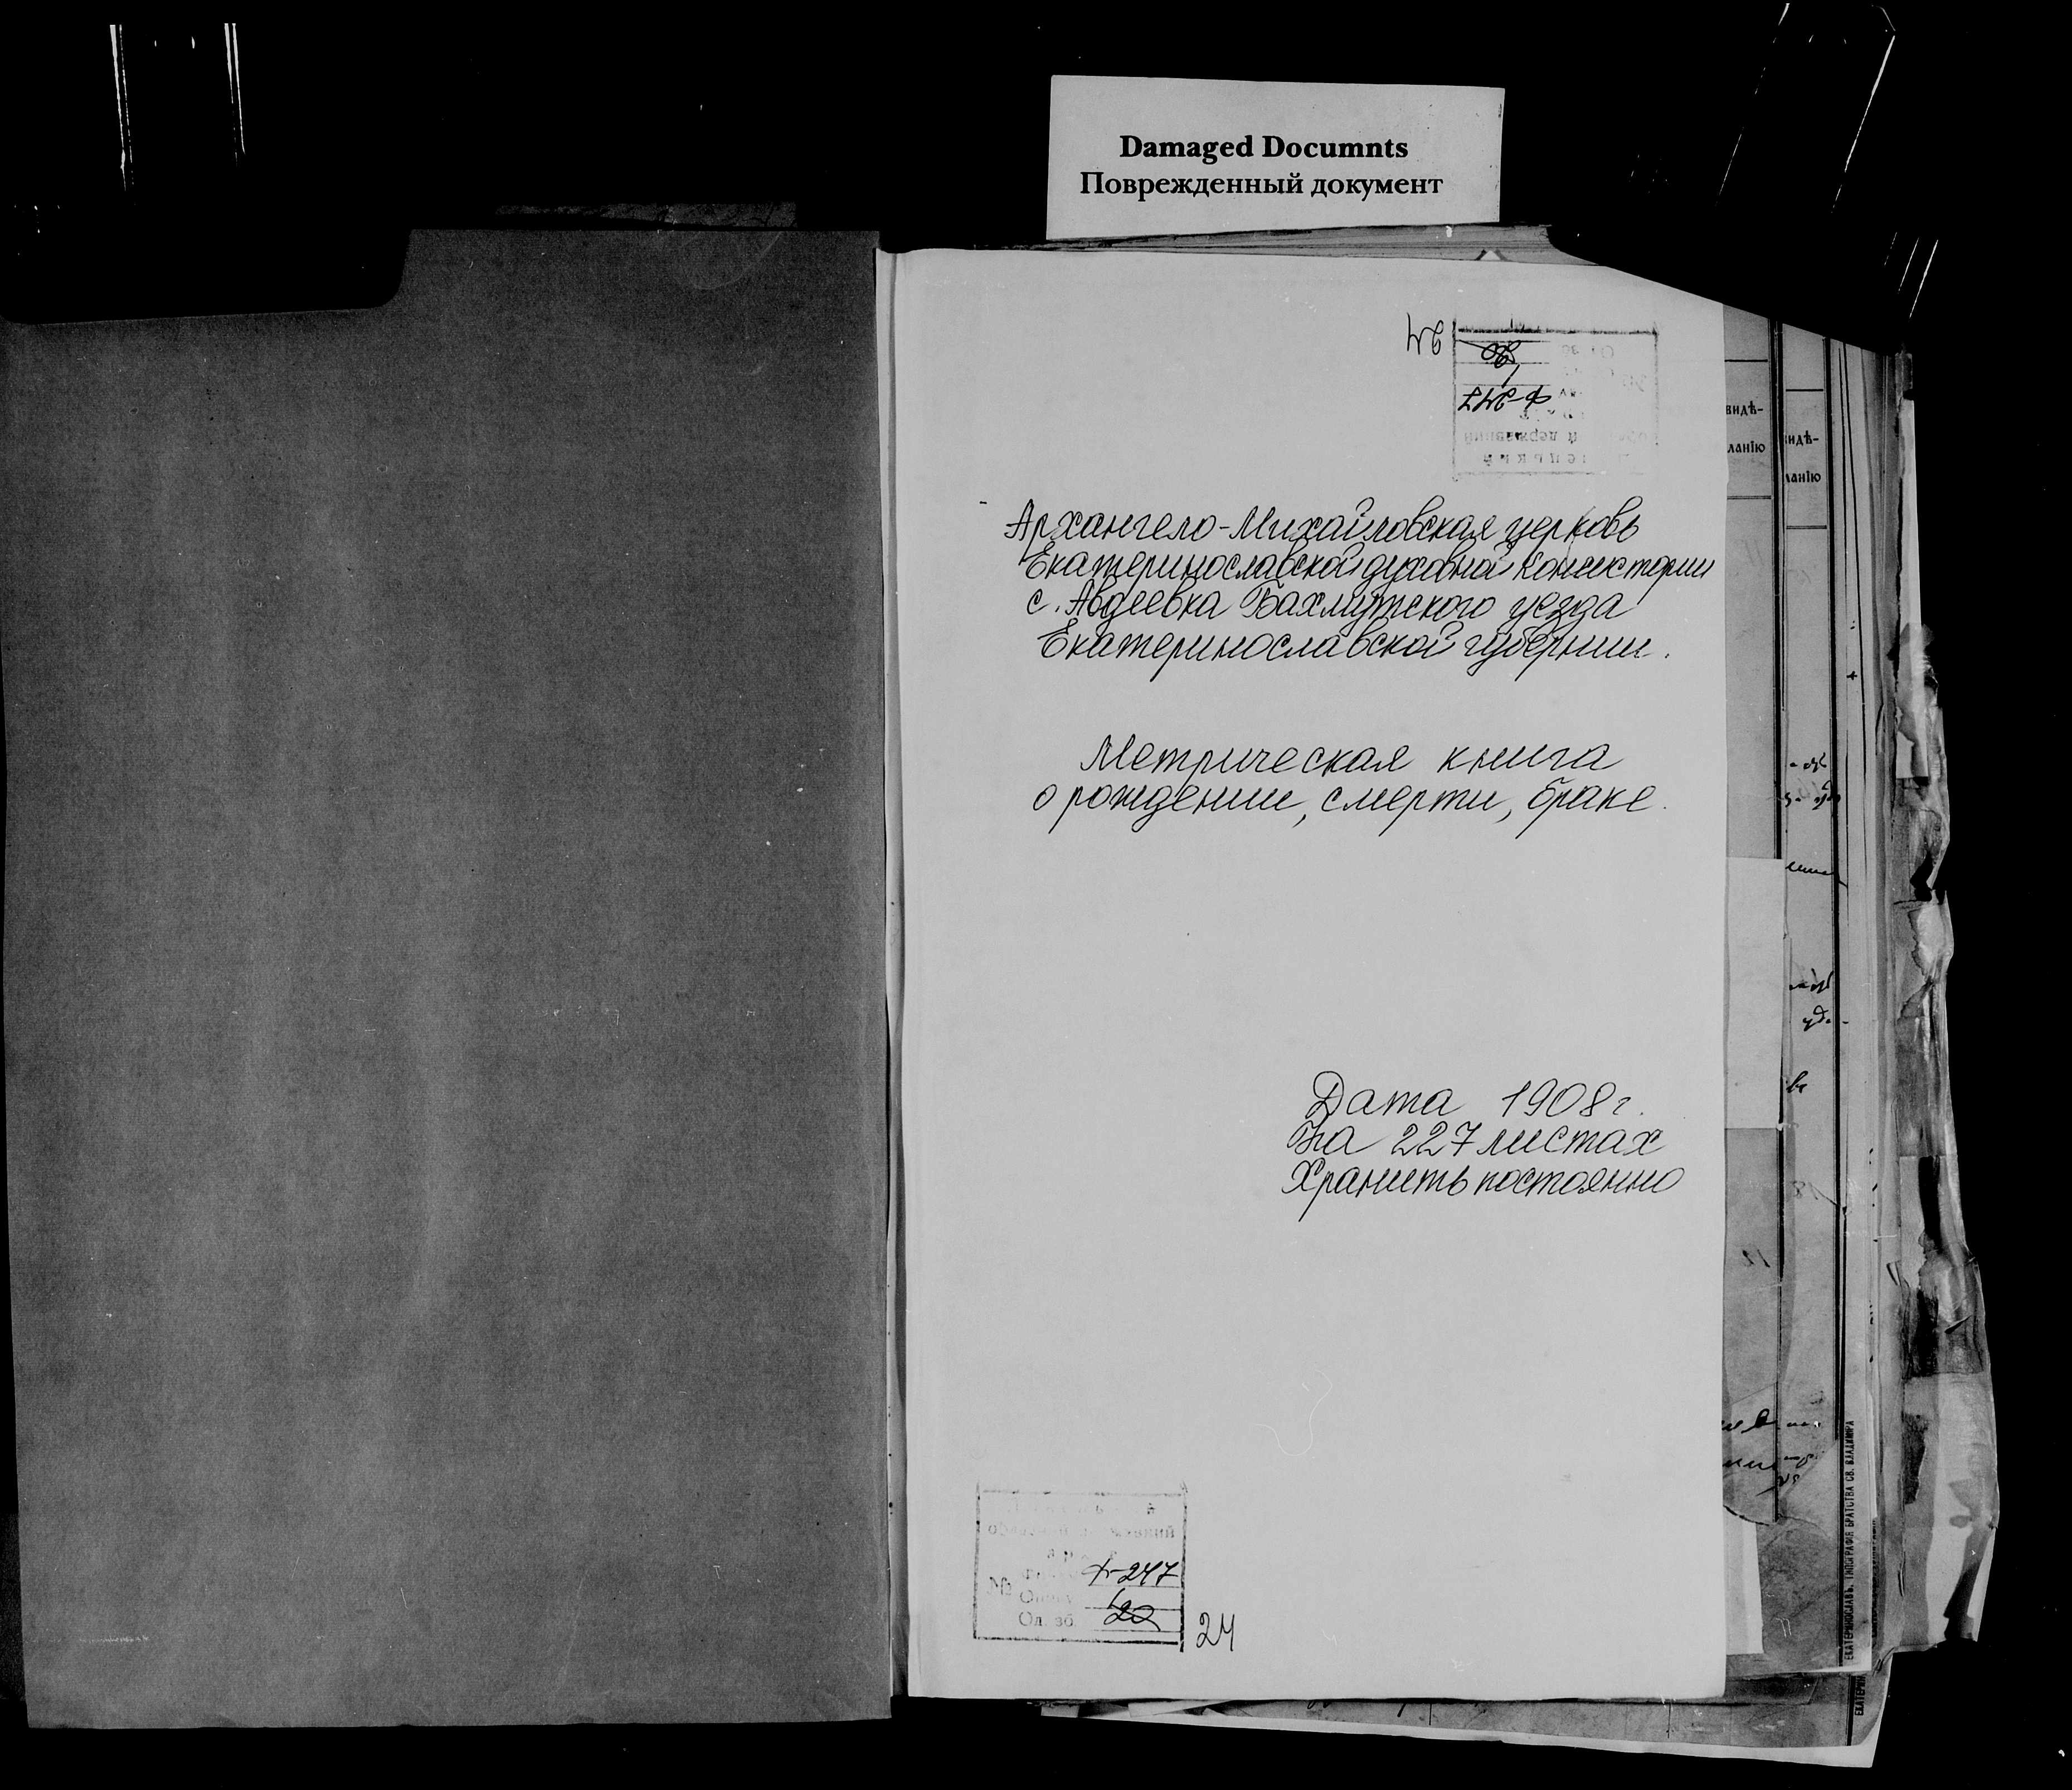 Damaged Documnts
Поврежденный документ
24
ф-247
20
Архангело-Михайловская церковь
Екатеринославской духовной консистории
с. Авдеевка Бахмутского уезда
Екатеринославской губернии.
Метрическая книга
о рождении, смерти, браке.
Дата 1908 г.
На 227 листах
Хранить постоянно
№
ф-247
1
Од. зб. 20
24
видѣ-
ланію
видѣ-
ланію
ЕКАТЕРИНОСЛАВЪ, ТИПОГРАФІЯ БРАТСТВА СВ. ВЛАДИМІРА